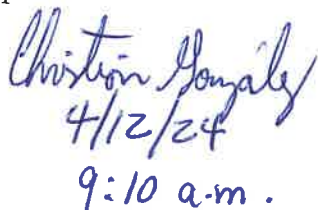 Christian González
4/12/24
9:10 a.m.